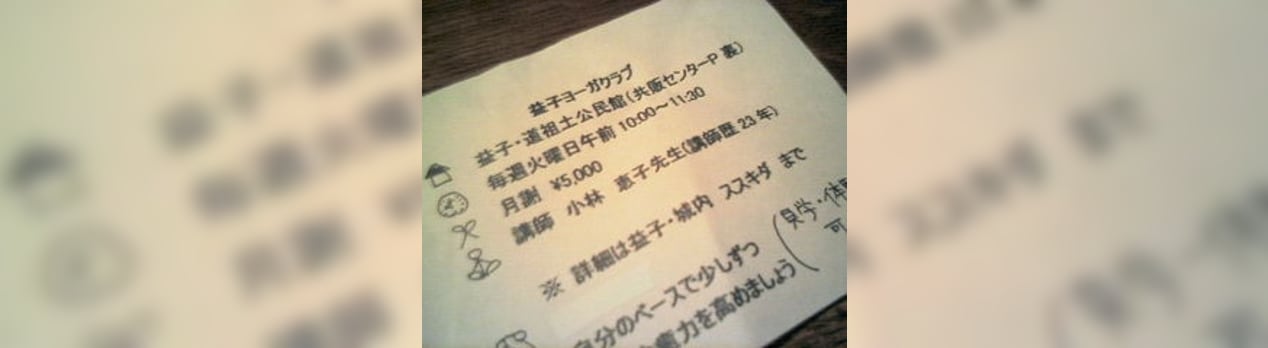 益子ヨーガクラブ
益子・道祖土公民館(共販センターP 裏)
毎週火曜日午前 10:00～11:30
月謝 ¥5,000
講師 小林 恵子先生(講師歴 23 年)
※ 詳細は益子・城内 ススキダ まで
(見学・体
可
自分のペースで少しずつ
力を高めましょう